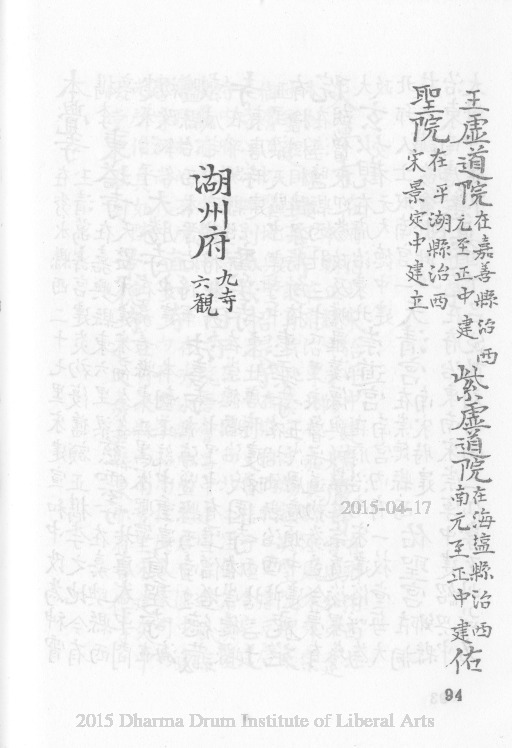 王虛道院在嘉善縣治西元至正中建紫虛道院在海塩縣治西南元至正中建佑
聖院在平湖縣治西宋景定中建立
湖州府九寺六觀
2015-04-17
94
2015 Dharma Drum Institute of Liberal Arts